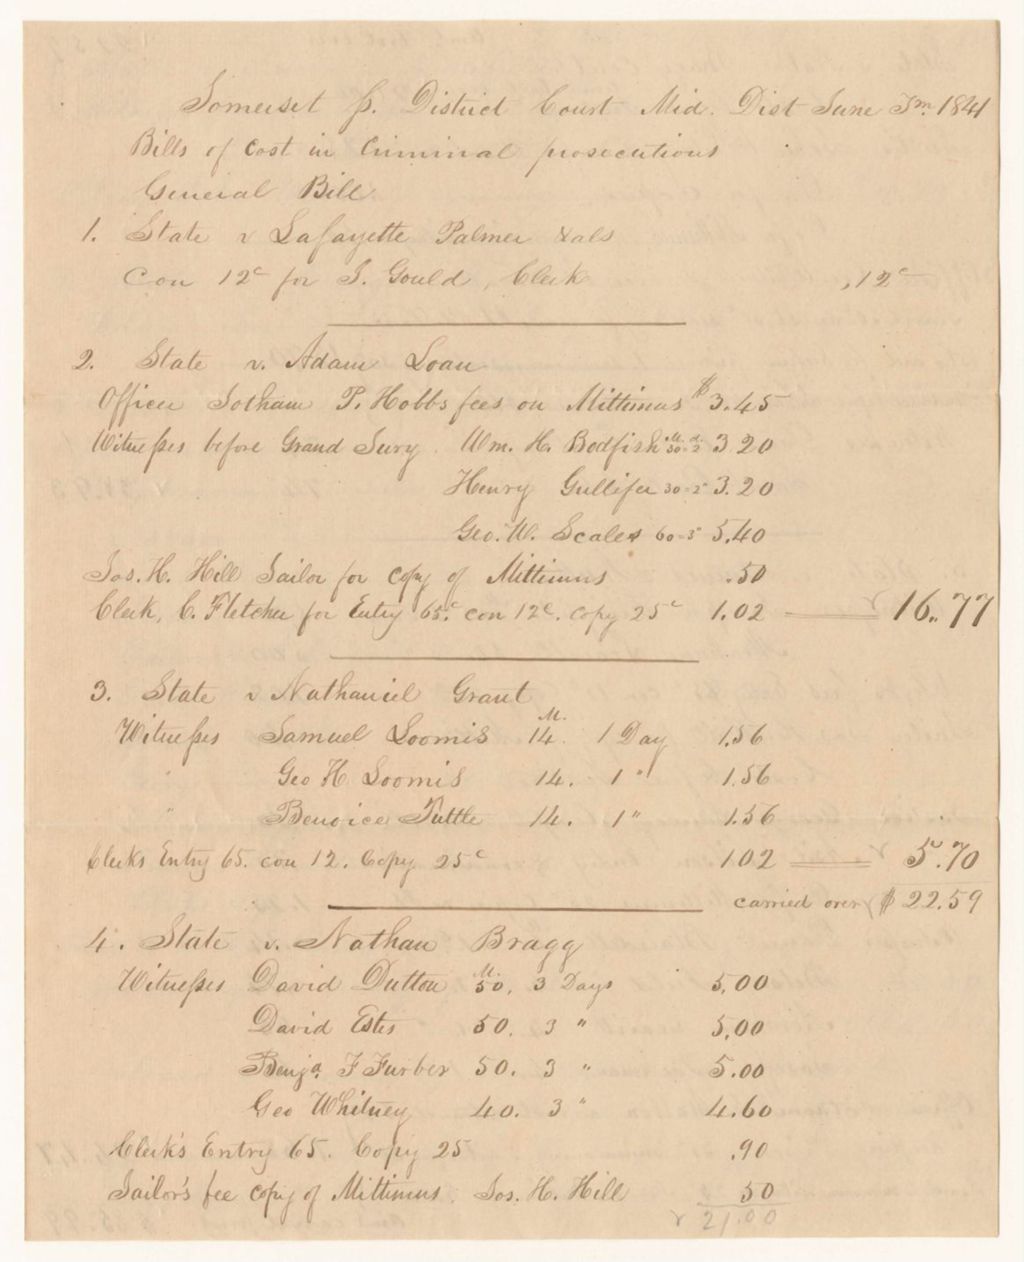 Somerset ss. District Court Mid. Dist June Tm. 1841
Bills of Cost in Criminal prosecutions
General Bill
1. State v Lafayette Palmer &als
Con 12c for J. Gould, Clerk ,12c
2. State v. Adam Loan
Officer Jotham P. Hobbs fees on Mittimus $3.45
Witnesses before Grand Jury. Wm. H. Bodfish M. d. 30=2 3.20
Henry Gullifer 30=2 3.20
Geo. W. Scales 60=3 5.40
Jos. H. Hill Jailor for copy of Mittimus .50
Clerk, C. Fletcher for Entry 65c. con 12c. copy 25c 1.02 16.77
3. State v Nathaniel Grant
Witnesses Samuel Loomis M. 14. 1 Day 1.56
" Geo H Loomis 14. 1 " 1.56
" Tuttle 14. 1 " 1.56
Clerks Entry 65. con 12. Copy 25c 1.02 5.70
carried over $22.59
4. State v. Nathan Bragg
Witnesses David Dutton M. 50. 3 Days 5.00
David Estes 50. 3 " 5.00
Benja. F Furber 50. 3 " 5.00
Geo Whitney 40. 3 " 4.60
Clerk's Entry 65. Copy 25 .90
Jailor's fee copy of Mittimus. Jos. H. Hill 50
21.00